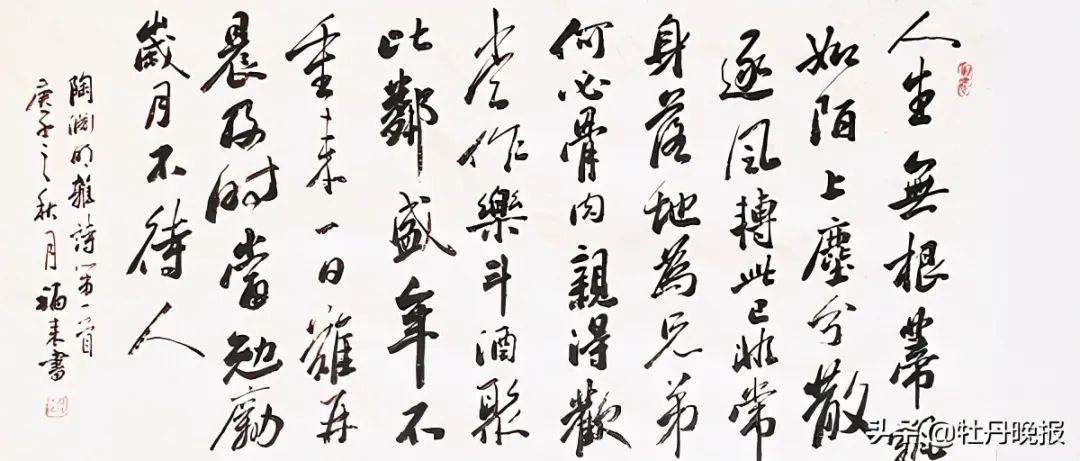 人生無根蒂飄
如陌上塵分散
逐風轉此已非常
身落地為兄弟
何必骨肉親得歡
當作樂斗酒聚
比鄰盛年不
重来一日難再
晨及時當勉勵
歲月不待人
陶淵明雜詩第一首
庚子之秋月福来書
头条@牡丹晚报